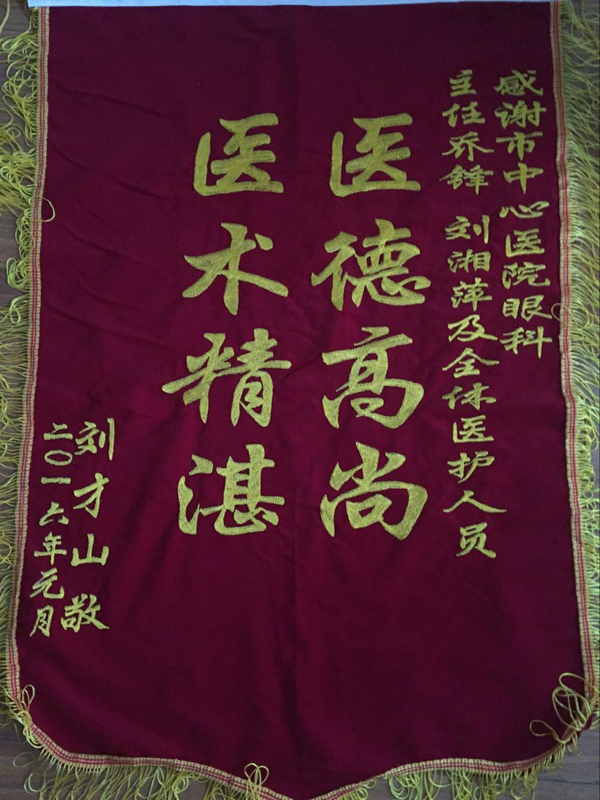 感谢市中心医院眼科
主任乔锋 刘湘萍及全体医护人员
医德高尚
医术精湛
刘才山敬
二〇一六年元月